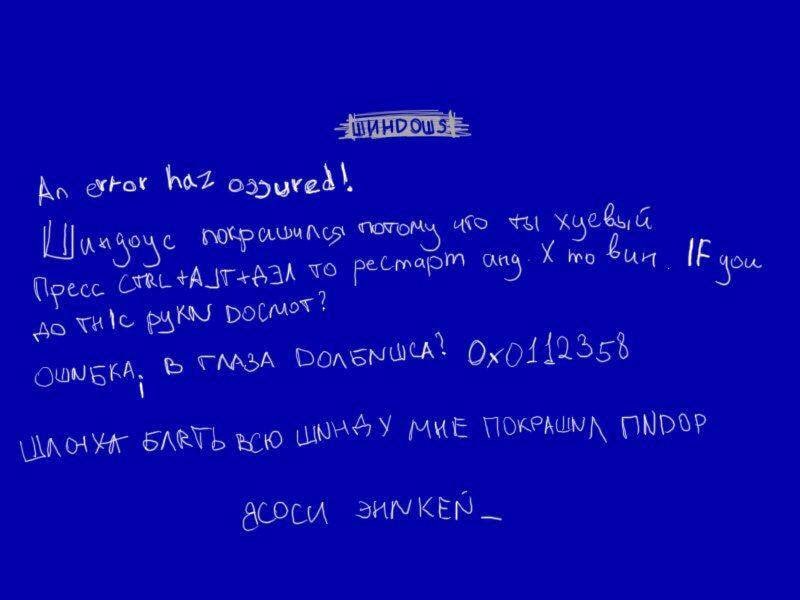 ШИНDОШS
An error haz ossured!
Шиндоус покрашился потому что ты хуевый
Пресс CTRL+ALT+ДЭЛ то рестарт анд Х то вин. IF you
до тн1с рукN DОСМОТ?
ОШNБКА; В ГЛАЗА DОЛБNШСА? 0x0112358
БЛЯТЬ ВСЮ ШNНДУ МНЕ ПОКРАШNЛ ПNDОР
ЯСОСИ ЭНNКЕЙ_